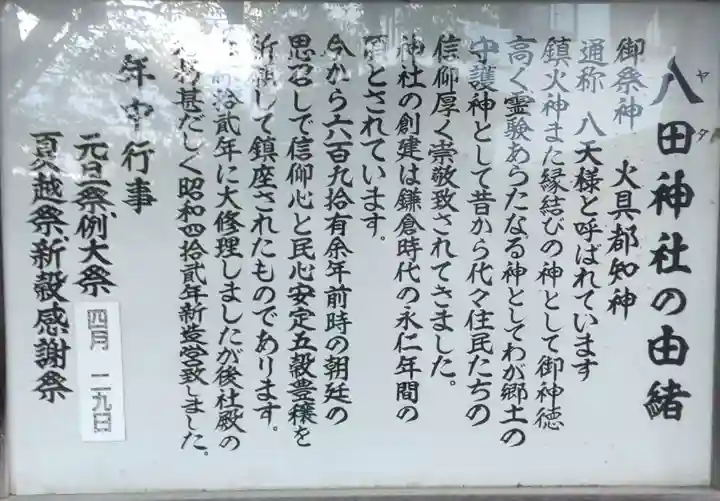 八田神社の由緒
ヤタ
御祭神 火具都知神
通称 八天様と呼ばれています
鎮火神また縁結びの神として御神徳
高く霊験あらたなる神としてわが郷土の
守護神として昔から代々住民たちの
信仰厚く崇敬されてきました。
神社の創建は鎌倉時代の永仁年間の
頃とされています。
今から六百九拾有余年前時の朝廷の
思召しで信仰心と民心安定五穀豊穣を
祈願して鎮座されたものであります。
拾貳年に大修理しましたが後社殿の
甚だしく昭和四拾貳年新造営致しました。
年中行事
元旦祭、例大祭 四月 二九日
夏越祭、新穀感謝祭